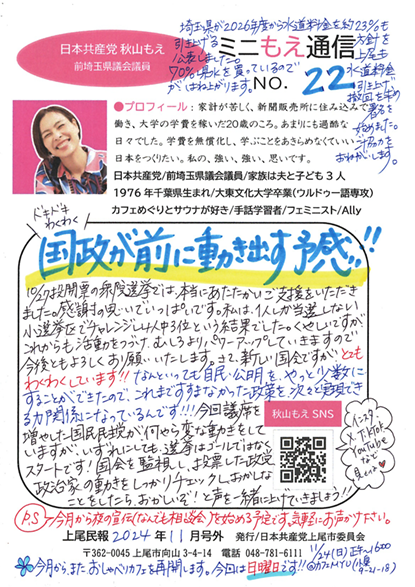 埼玉県が2026年度から水道料金を約23%も
引き上げる
公表しました。
70%県水を買っているので
がはね上がります。
方針を
上尾も
水道料金
引上げ
撤回を求め
署名を
始めました。
ご協力を
おねがいします。
日本共産党 秋山もえ
前埼玉県議会議員
ミニもえ通信
NO. 22
●プロフィール：家計が苦しく、新聞販売所に住み込みで
働き、大学の学費を稼いだ20歳のころ。あまりにも過酷な
日々でした。学費を無償化し、学ぶことをあきらめなくていい
日本をつくりたい。私の、強い、強い、思いです。
日本共産党/前埼玉県議会議員/家族は夫と子ども3人
1976年千葉県生まれ/大東文化大学卒業(ウルドゥー語専攻)
カフェめぐりとサウナが好き/手話学習者/フェミニスト/Ally
ドキドキ
わくわく
国政が前に動き出す予感!!
10/27投開票の衆院選挙では、本当にあたたかいご支援をいただき
ました。感謝の思いでいっぱいです。私は、1人が当選しない
小選挙区でチャレンジし4人中3位という結果でした。くやしいですが、
これからも活動をつづけ、むしろよりパワーアップしていきますので
今後ともよろしくお願いいたします。さて、新しい国会ですが、とても
わくわくしています!! なんといっても自民・公明を、やっと少数に
することができたので、これまですすまなかった政策を次々と実現でき
る力関係になっているんです!!! 今回議席を
増やした国民民主党が何やら変な動きをして
いますが、いずれにしても、選挙はゴールではなく
スタートです! 国会を監視し、投票した政党
政治家の動きをしっかりチェックし、おかしな
ことをしたら、おかしいぞ! と声を一緒に上げていきましょう!!
秋山もえ SNS
インスタ
X、TikTok
YouTube
など
見てネ
P.S 今月から夜の宣伝(なんでも相談会)を始める予定です。気軽にお声がけ下さい。
上尾民報 2024年11月号外 発行/日本共産党上尾市委員会
〒362-0045 上尾市向山3-4-14 電話 048-781-6111
今月から、またおしゃべりカフェを再開します。今回は日曜日です!!
11/24(日)正午〜16:00
@カフェMyu(小敷谷 9-21-18)